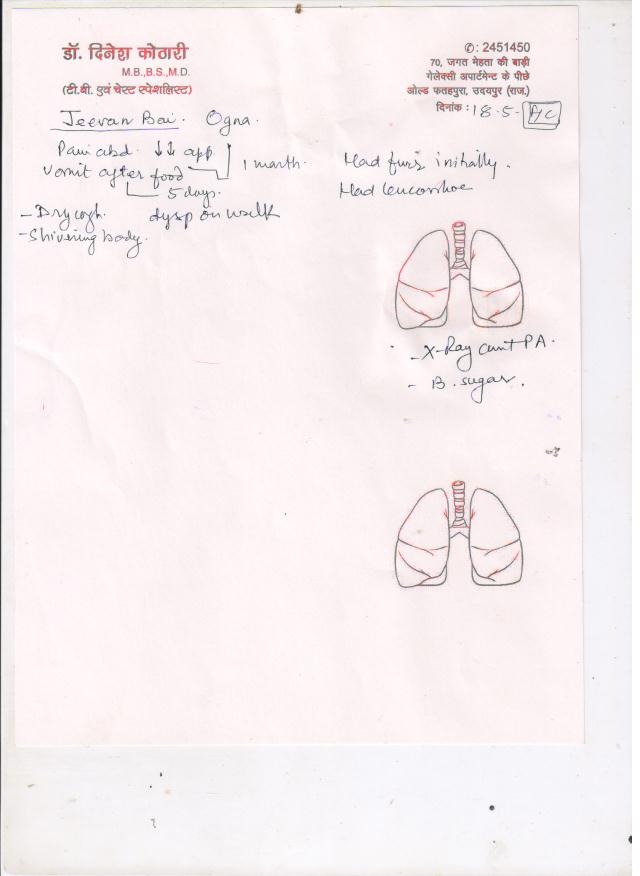 डॉ. दिनेश कोठारी
M.B.,B.S.,M.D.
(टी.बी. एवं चेस्ट स्पेशलिस्ट)
✆: 2451450
70, जगत मेहता की बाड़ी
गेलेक्सी अपार्टमेन्ट के पीछे
ओल्ड फतहपुरा, उदयपुर (राज.)
दिनांक : 18.5.
Jeevan Bai. Ogna.
Pain abd. ↓↓ app.
Vomit after food
1 month.
5 days.
- Dry cogh. dysp on walk
- Shivering body.
Had initially.
Had leucorrhoe
- X-Ray PA.
- B. sugar.